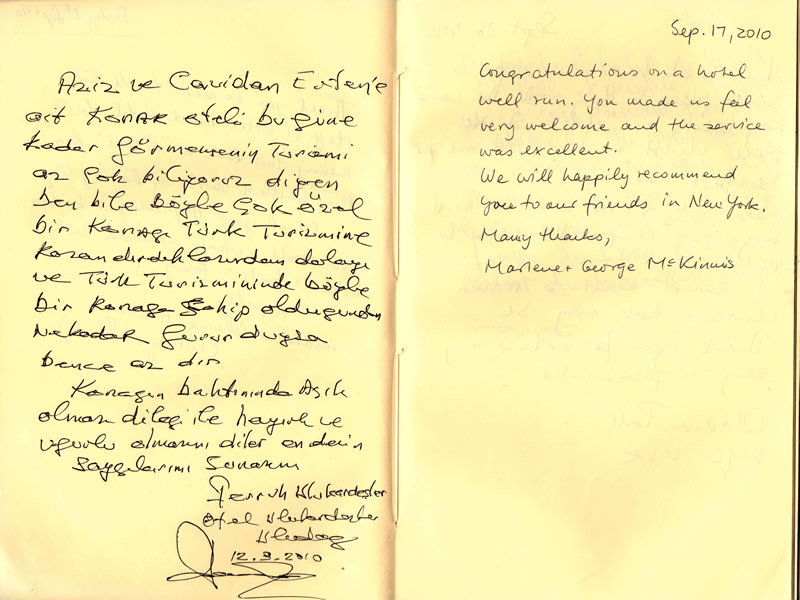 Aziz ve Cavidan Evren'e
ait Konak oteli bugüne
kadar Görmemenin Turizmi
az çok biliyoruz diyen
ben bile böyle çok özel
bir Konagı Türk Turizmine
kazandırdıklarından dolayı
ve Türk Turizmininde böyle
bir konaga sahip olduğundan
Nekadar Gurur duysa
bence az dır
Konagın bahtınında Açık
olması dileği ile hayırlı ve
ugurlu olmasını diler en derin
saygılarımı sunarım
Ferruh Ulukardeşler
Otel Ulukardeşler
Uludag
12.9.2010
Sep. 17, 2010
Congratulations on a hotel
well run. You made us feel
very welcome and the service
was excellent.
We will happily recommend
you to our friends in New York.
Many thanks,
Marlene + George McKinnis